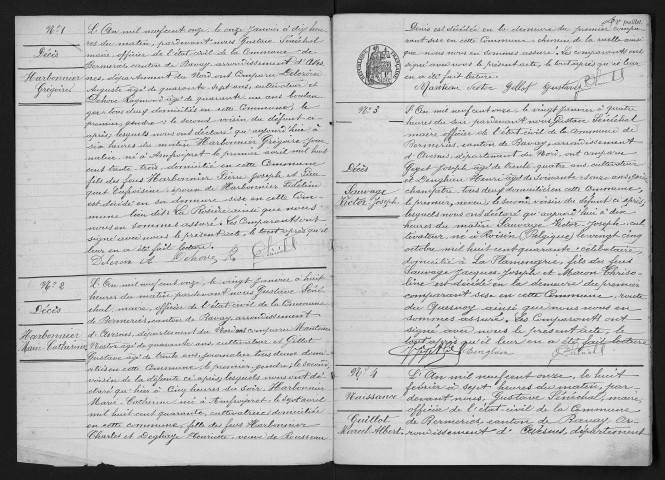 N° 1
Décès
Harbonnier
Grégoire
L'An mil neuf cent onze, le onze janvier à dix heures
du matin, pardevant nous Gustave Sénéchal
maire, officier de l'état civil de la Commune de
Bermeries canton de Bavay, arrondissement d'Avesnes,
département du Nord ont comparu Delcroix
Auguste âgé de quarante sept ans, cultivateur et
Dehove âgé de quarante un ans
tous deux domiciliés en cette Commune, le
premier, gendre, le second voisin du défunt ci-
après, lesquels nous ont déclaré qu'aujourd'hui à
six heures du matin Harbonnier Grégoire
né à Amfroipret le premier avril mil huit
cent trente trois domicilié en cette Commune
fils des feus Harbonnier Pierre Joseph et
époux de Harbonnier
est décédé en sa demeure sise en cette Commune
lieu dit La Rosière ainsi que nous
nous en sommes assuré. Les Comparants ont
signé avec nous le présent acte, le tout après qu'il
leur en a été fait lecture.
Delcroix A Dehove
N° 2
Décès
Harbonnier
Marie Catherine
L'An mil neuf cent onze, le vingt janvier à huit
heures du matin pardevant nous Gustave Sénéchal,
maire, officier de l'état civil de la Commune
de Bermeries canton de Bavay, arrondissement
d'Avesnes, département du Nord ont comparu
Nestor âgé de quarante ans cultivateur et Gillot
Gustave âgé de trente ans, tous deux domiciliés
en cette Commune, le premier, gendre, le second,
voisin de la défunte ci-après, lesquels nous ont déclaré
qu'hier à cinq heures du soir Harbonnier
Marie Catherine née à Amfroipret le sept avril
mil huit cent quarante, cultivatrice, domiciliée
en cette commune, fille des feus Harbonnier
Charles et Henriette, veuve de Rousseau
feuillet.
Denis est décédée en la demeure du premier comparant
sise en cette Commune chemin de la ruelle ainsi
que nous nous en sommes assuré. Les comparants ont
signé avec nous le présent acte, le tout après qu'il leur
en a été fait lecture.
Nestor Gillot Gustave
N° 3
Décès
Sauvage
Victor Joseph
L'An mil neuf cent onze, le vingt janvier à quatre
heures du soir, pardevant nous Gustave Sénéchal
maire officier de l'état civil de la Commune de
Bermeries, canton de Bavay, arrondissement
d'Avesnes, département du Nord, ont comparu
âgé de trente quatre ans cultivateur
et Henri âgé de soixante ans, garde
champêtre tous deux domiciliés en cette Commune,
le premier, neveu, le second, voisin du défunt ci-après,
lesquels nous ont déclaré qu'aujourd'hui à dix
heures du matin Sauvage Victor Joseph, cultivateur
né à Roisin (Belgique) le vingt cinq
octobre mil huit cent quarante célibataire
domicilié à La Flamengrie, fils des feus
Sauvage Jacques Joseph et Macon
est décédé en la demeure du premier
comparant sise en cette Commune, route
du Quesnoy ainsi que nous nous en
sommes assuré. Les Comparants ont
signé avec nous le présent acte, le
tout après qu'il leur en a été fait lecture
N° 4
Naissance
Guillot
Marcel Albert
L'An mil neuf cent onze, le huit
février à sept heures du matin, par
devant nous, Gustave Sénéchal, maire,
officier de l'état civil de la Commune
de Bermeries canton de Bavay ar-
rondissement d'Avesnes, département